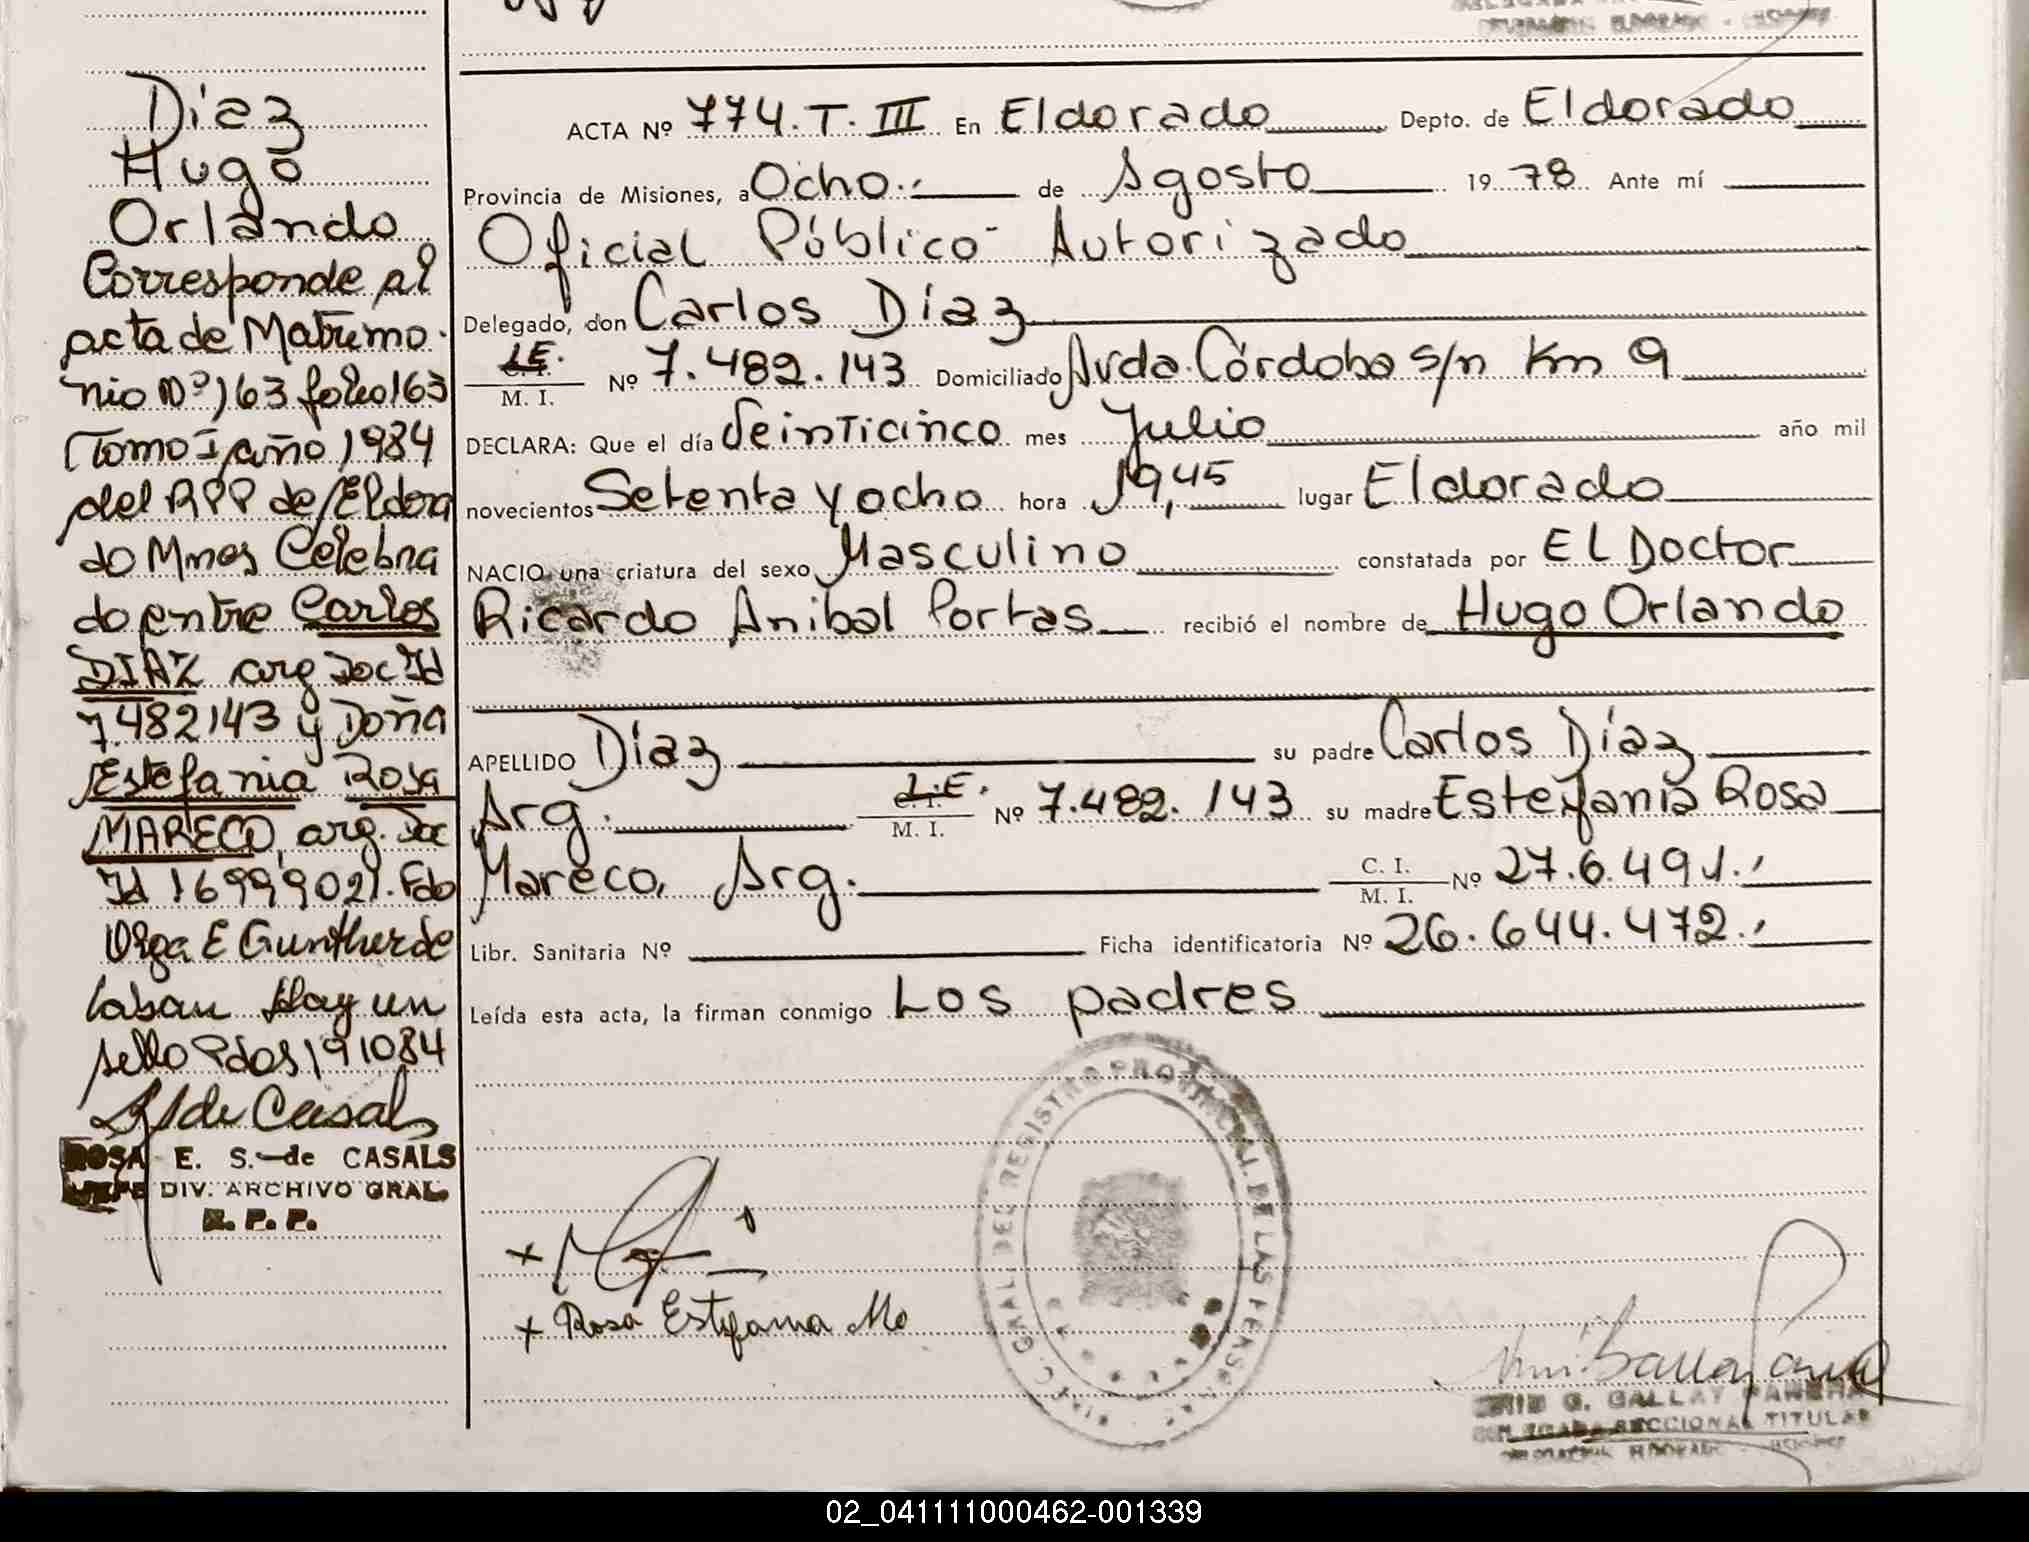 Díaz
Hugo
Orlando
Corresponde al
acta de Matrimo-
nio Nº 163 folio 163
Tomo I año 1984
del RPP de Eldora
do Mnes Celebra
do entre Carlos
DIAZ arg Doc Id
7.482143 y Doña
Estefania Rosa
MARECO, arg. Doc
Id 16999021. Fdo
Olga E Gunther de
laban Hay un
sello Pdos 191084
de Casals
ROSA E. S. de CASALS
JEFE DIV. ARCHIVO GRAL.
R. P. P.
ACTA Nº 774. T. III En Eldorado Depto. de Eldorado
Provincia de Misiones, a Ocho.- de Agosto 19 78 Ante mí
Oficial Público Autorizado
Delegado, don Carlos Díaz
L.E.
M. I. Nº 7.482.143 Domiciliado Avda. Córdoba s/n Km 9
DECLARA: Que el día Veinticinco mes Julio año mil
novecientos Setenta y ocho hora 19,45 lugar Eldorado
NACIO una criatura del sexo Masculino constatada por El Doctor
Ricardo Anibal Portas recibió el nombre de Hugo Orlando
APELLIDO Díaz su padre Carlos Díaz
Arg. L.E. M. I. Nº 7.482.143 su madre Estefania Rosa
Mareco, Arg. C. I. M. I. Nº 27.6.491.-
Libr. Sanitaria Nº Ficha identificatoria Nº 26.644.472.-
Leída esta acta, la firman conmigo Los padres
GRAL. DEL REGISTRO PROVINCIAL DE LAS PERSONAS
+
+ Rosa Estefania Mo
G. GALLAY
SECCIONAL TITULAR
ELDORADO - MISIONES
02_041111000462-001339